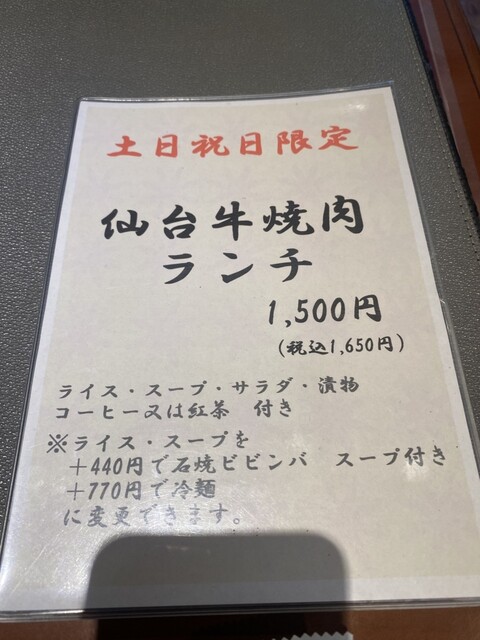 土日祝日限定
仙台牛焼肉
ランチ
1,500円
(税込1,650円)
ライス・スープ・サラダ・漬物
コーヒー又は紅茶　付き
※ライス・スープを
＋440円で石焼ビビンバ　スープ付き
＋770円で冷麺
に変更できます。